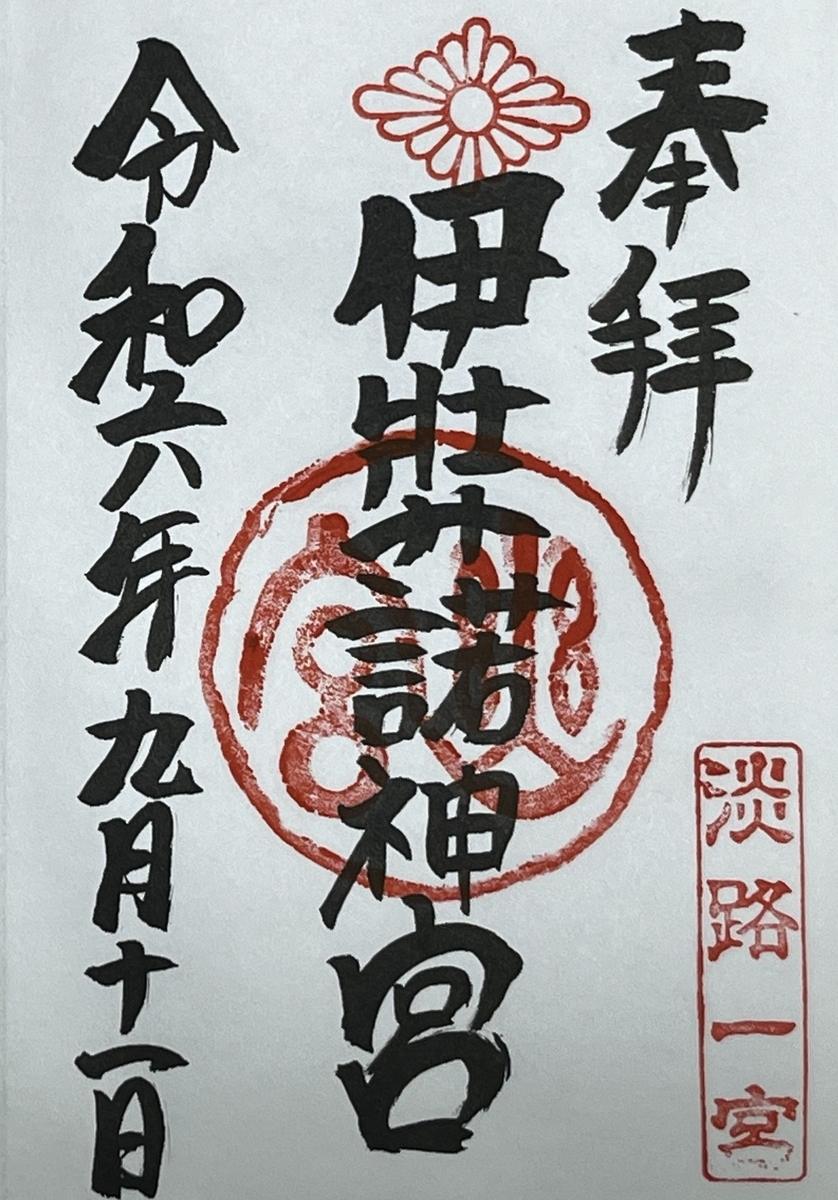 奉拝
淡路一宮
伊弉諾神宮
令和六年九月十一日